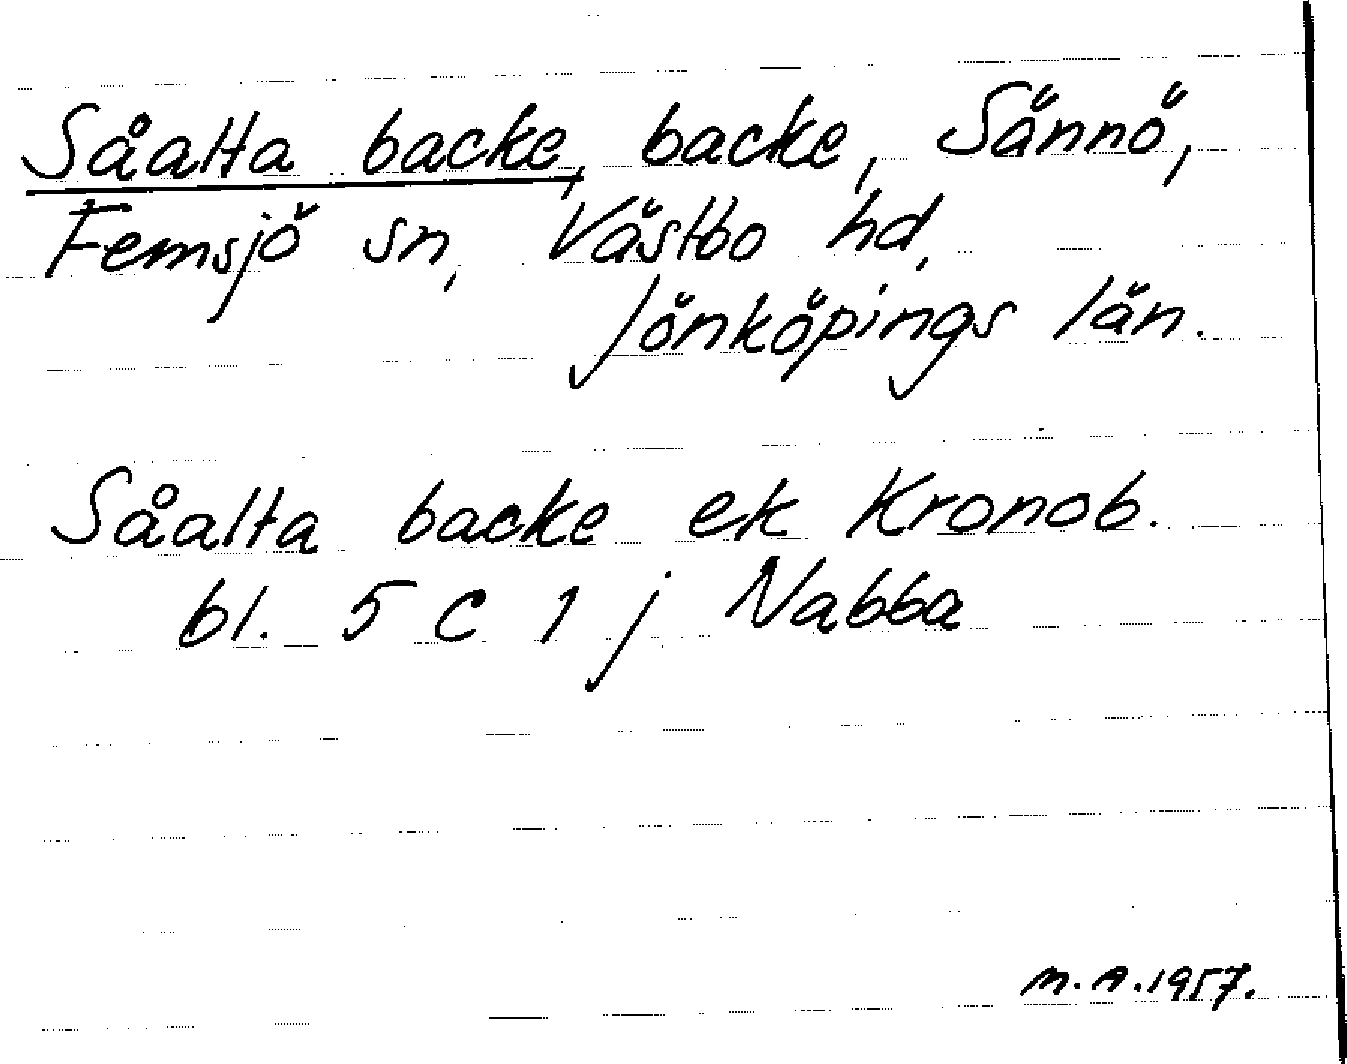 Såalta backe, backe, Sännö,
Femsjö sn, Västbo hd,
Jönköpings län.
Såalta backe ek Kronob.
bl. 5 C 1 j Nabba
M.A.1957.